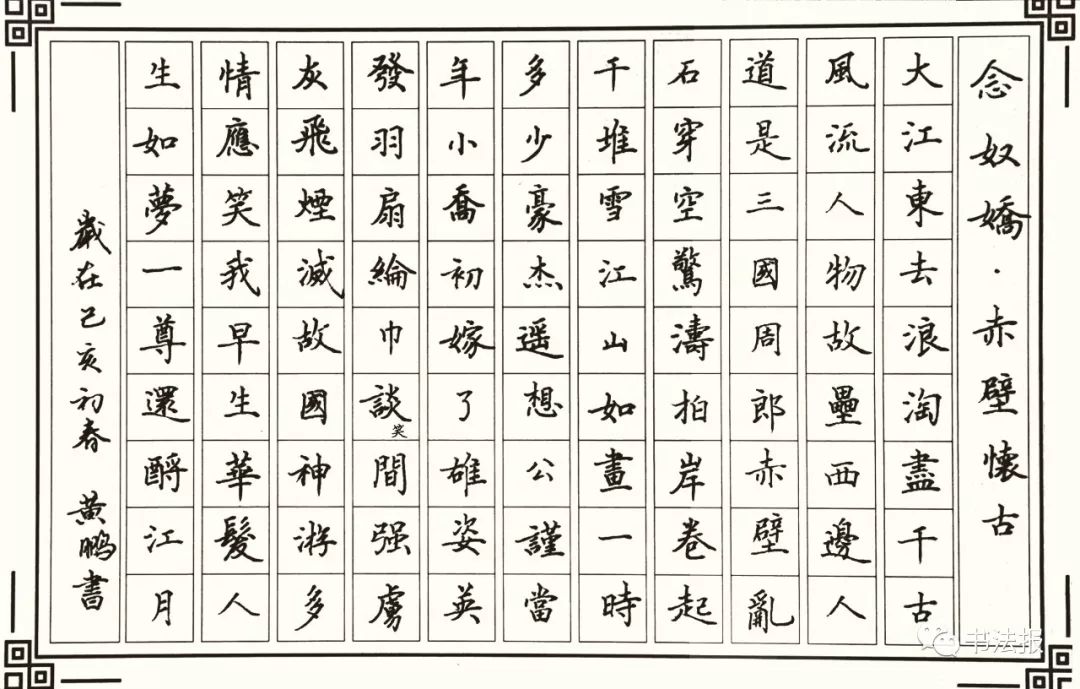 念奴嬌·赤壁懷古
大江東去浪淘盡千古
風流人物故壘西邊人
道是三國周郎赤壁亂
石穿空驚濤拍岸卷起
千堆雪江山如畫一時
多少豪杰遥想公謹當
年小喬初嫁了雄姿英
發羽扇綸巾談笑間强虜
灰飛煙滅故國神游多
情應笑我早生華髮人
生如夢一尊還酹江月
歲在己亥初春 黄鵬書
书法报